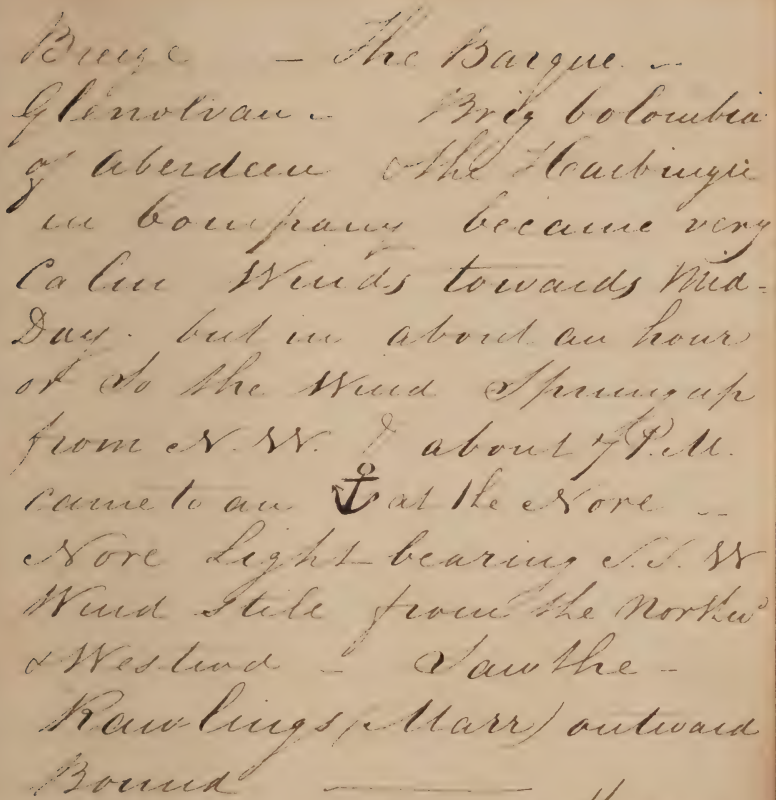 Breeze — The Barque —
Glenolvan — Brig Colombia
of Aberdeen & the Harbinger
in Company became very
Calm Winds towards Mid-
Day. but in about an hour
or So the Wind Sprung up
from N. W. & about 7 P.M.
came to an ⚓ at the Nore —
Nore Light bearing S.S.W
Wind still from the Northwd
& Westwd — Saw the —
Rawlings (Marr) outward
Bound ———